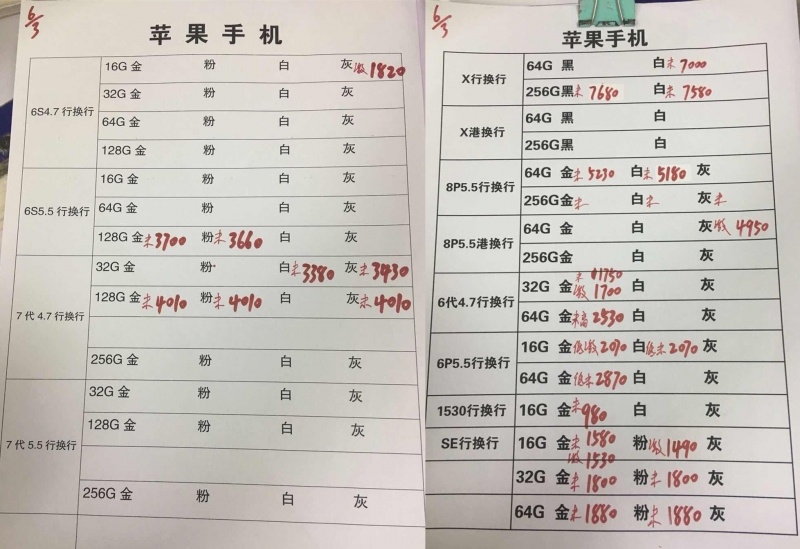 6/3
苹果手机
6S4.7行换行
16G 金 粉 白 灰激1820
32G 金 粉 白 灰
64G 金 粉 白 灰
128G 金 粉 白 灰
6S5.5行换行
16G 金 粉 白 灰
64G 金 粉 白 灰
128G 金未3700 粉未3660 白 灰
7代4.7行换行
32G 金 粉 白未3380 灰未3430
128G 金未4010 粉未4010 白 灰未4010
256G 金 粉 白 灰
7代5.5行换行
32G 金 粉 白 灰
128G 金 粉 白 灰
256G 金 粉 白 灰
6/3
苹果手机
X行换行
64G 黑 白未7000
256G黑未7680 白未7580
X港换行
64G 黑 白
256G黑 白
8P5.5行换行
64G 金未5230 白未5180 灰
256G金未 白未 灰未
8P5.5港换行
64G 金 白 灰激4950
256G金 白 灰
6代4.7行换行
32G 金未1750 激1700 白 灰
64G 金未高2530 白 灰
6P5.5行换行
16G 金低激2070 白低未2070 灰
64G 金低未2870 白 灰
1530行换行
16G 金未980 白 灰
SE行换行
16G 金未1580 激1530 粉激1490 灰
32G 金未1800 粉未1800 灰
64G 金未1880 粉未1880 灰